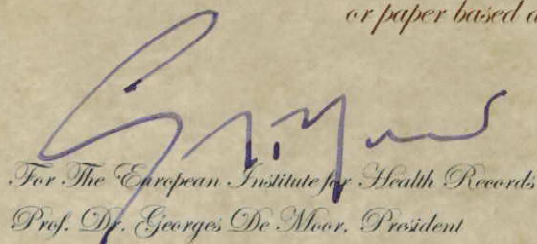 or paper based a
For The European Institute for Health Records
Prof. Dr. Georges De Moor, President